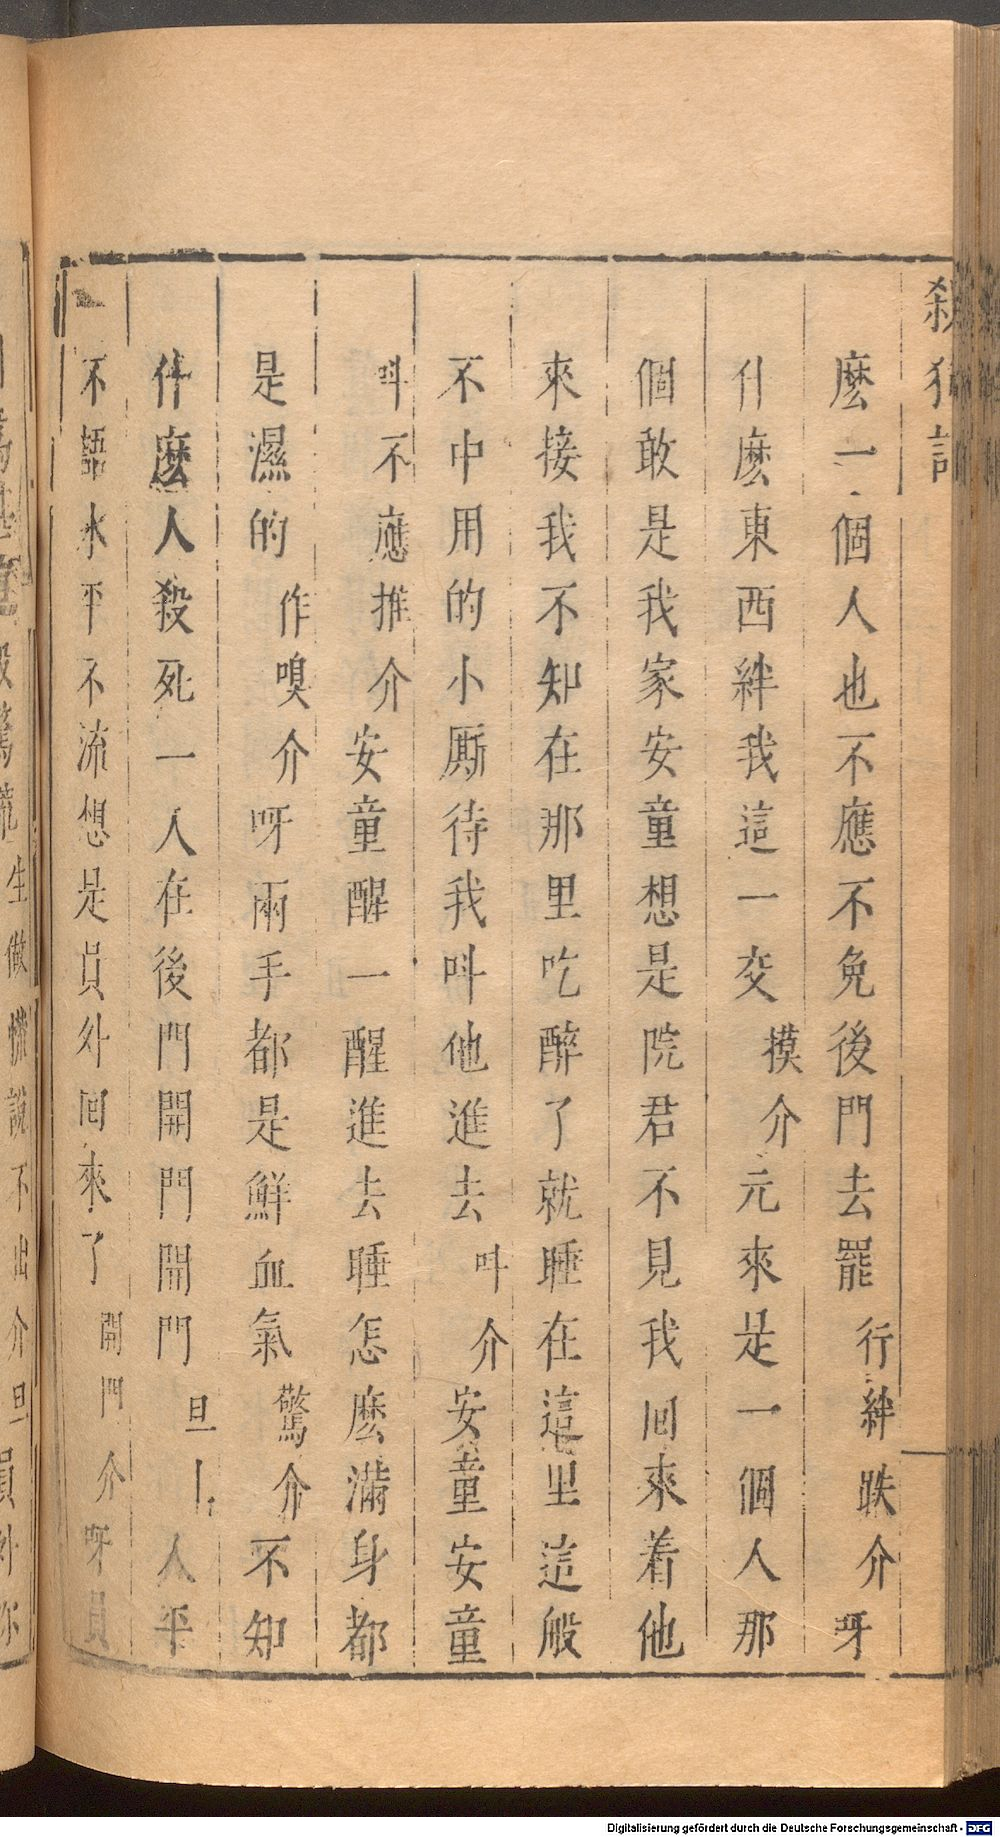 殺狗記
麽一個人也不應不免後門去罷行絆跌介呀
什麽東西絆我這一交摸介元來是一個人那
個敢是我家安童想是院君不見我囘來着他
來接我不知在那里吃醉了就睡在這里這般
不中用的小厮待我呌他進去呌介安童安童
呌不應推介安童醒一醒進去睡怎麽滿身都
是濕的作嗅介呀兩手都是鮮血氣驚介不知
什麽人殺死一人在後門開門開門旦上人平
不語水平不流想是員外囘來了開門介呀員
生做慌說不出介旦員外你
Digitalisierung gefördert durch die Deutsche Forschungsgemeinschaft - DFG